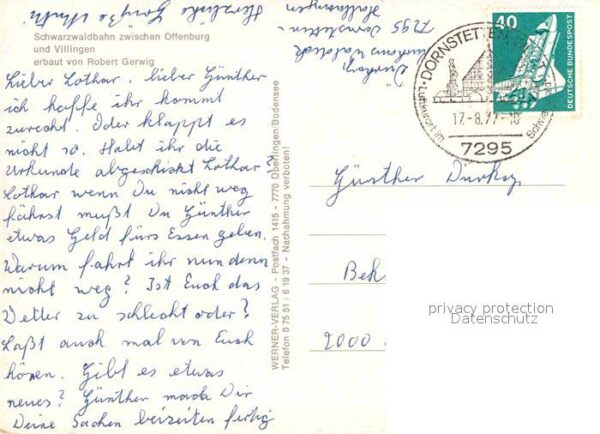 Schwarzwaldbahn zwischen Offenburg
und Villingen
erbaut von Robert Gerwig
Lieber Lothar, lieber Günther
ich hoffe ihr kommt
zurecht. Oder klappt es
nicht so. Habt ihr die
Urkunde abgeschickt Lothar?
Lothar wenn Du nicht weg
fährst mußt Du Günther
etwas Geld fürs Essen geben.
Warum fahrt ihr nun denn
nicht weg? Ist Euch das
Wetter zu schlecht oder?
Laßt auch mal von Euch
hören. Gibt es etwas
neues? Günther mach Dir
Deine Sachen beizeiten fertig
Herzliche Grüße Mutti
7295 Dornstetten-
Hallwangen
WERNER-VERLAG - Postfach 1415 - 7770 Überlingen/Bodensee
Telefon 0 75 51 / 6 19 37 - Nachahmung verboten!
DORNSTETTEN
Luftkurort im
17.-8.77
7295
40
DEUTSCHE BUNDESPOST
Günther
Bek
2000
privacy protection
Datenschutz